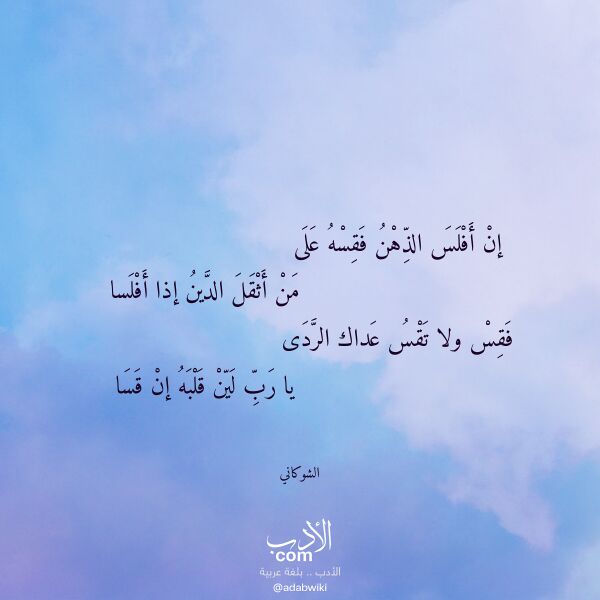 إنْ أَفْلَسَ الذِّهْنُ فَقِسْهُ عَلَى
مَنْ أَثْقَلَ الدَّينُ إذا أَفْلَسا
فَقِسْ ولا تَقْسُ عَداك الرَّدَى
يا رَبِّ لَيّنْ قَلْبَهُ إنْ قَسَا
الشوكاني
الأدب
com
الأدب .. بلغة عربية
@adabwiki